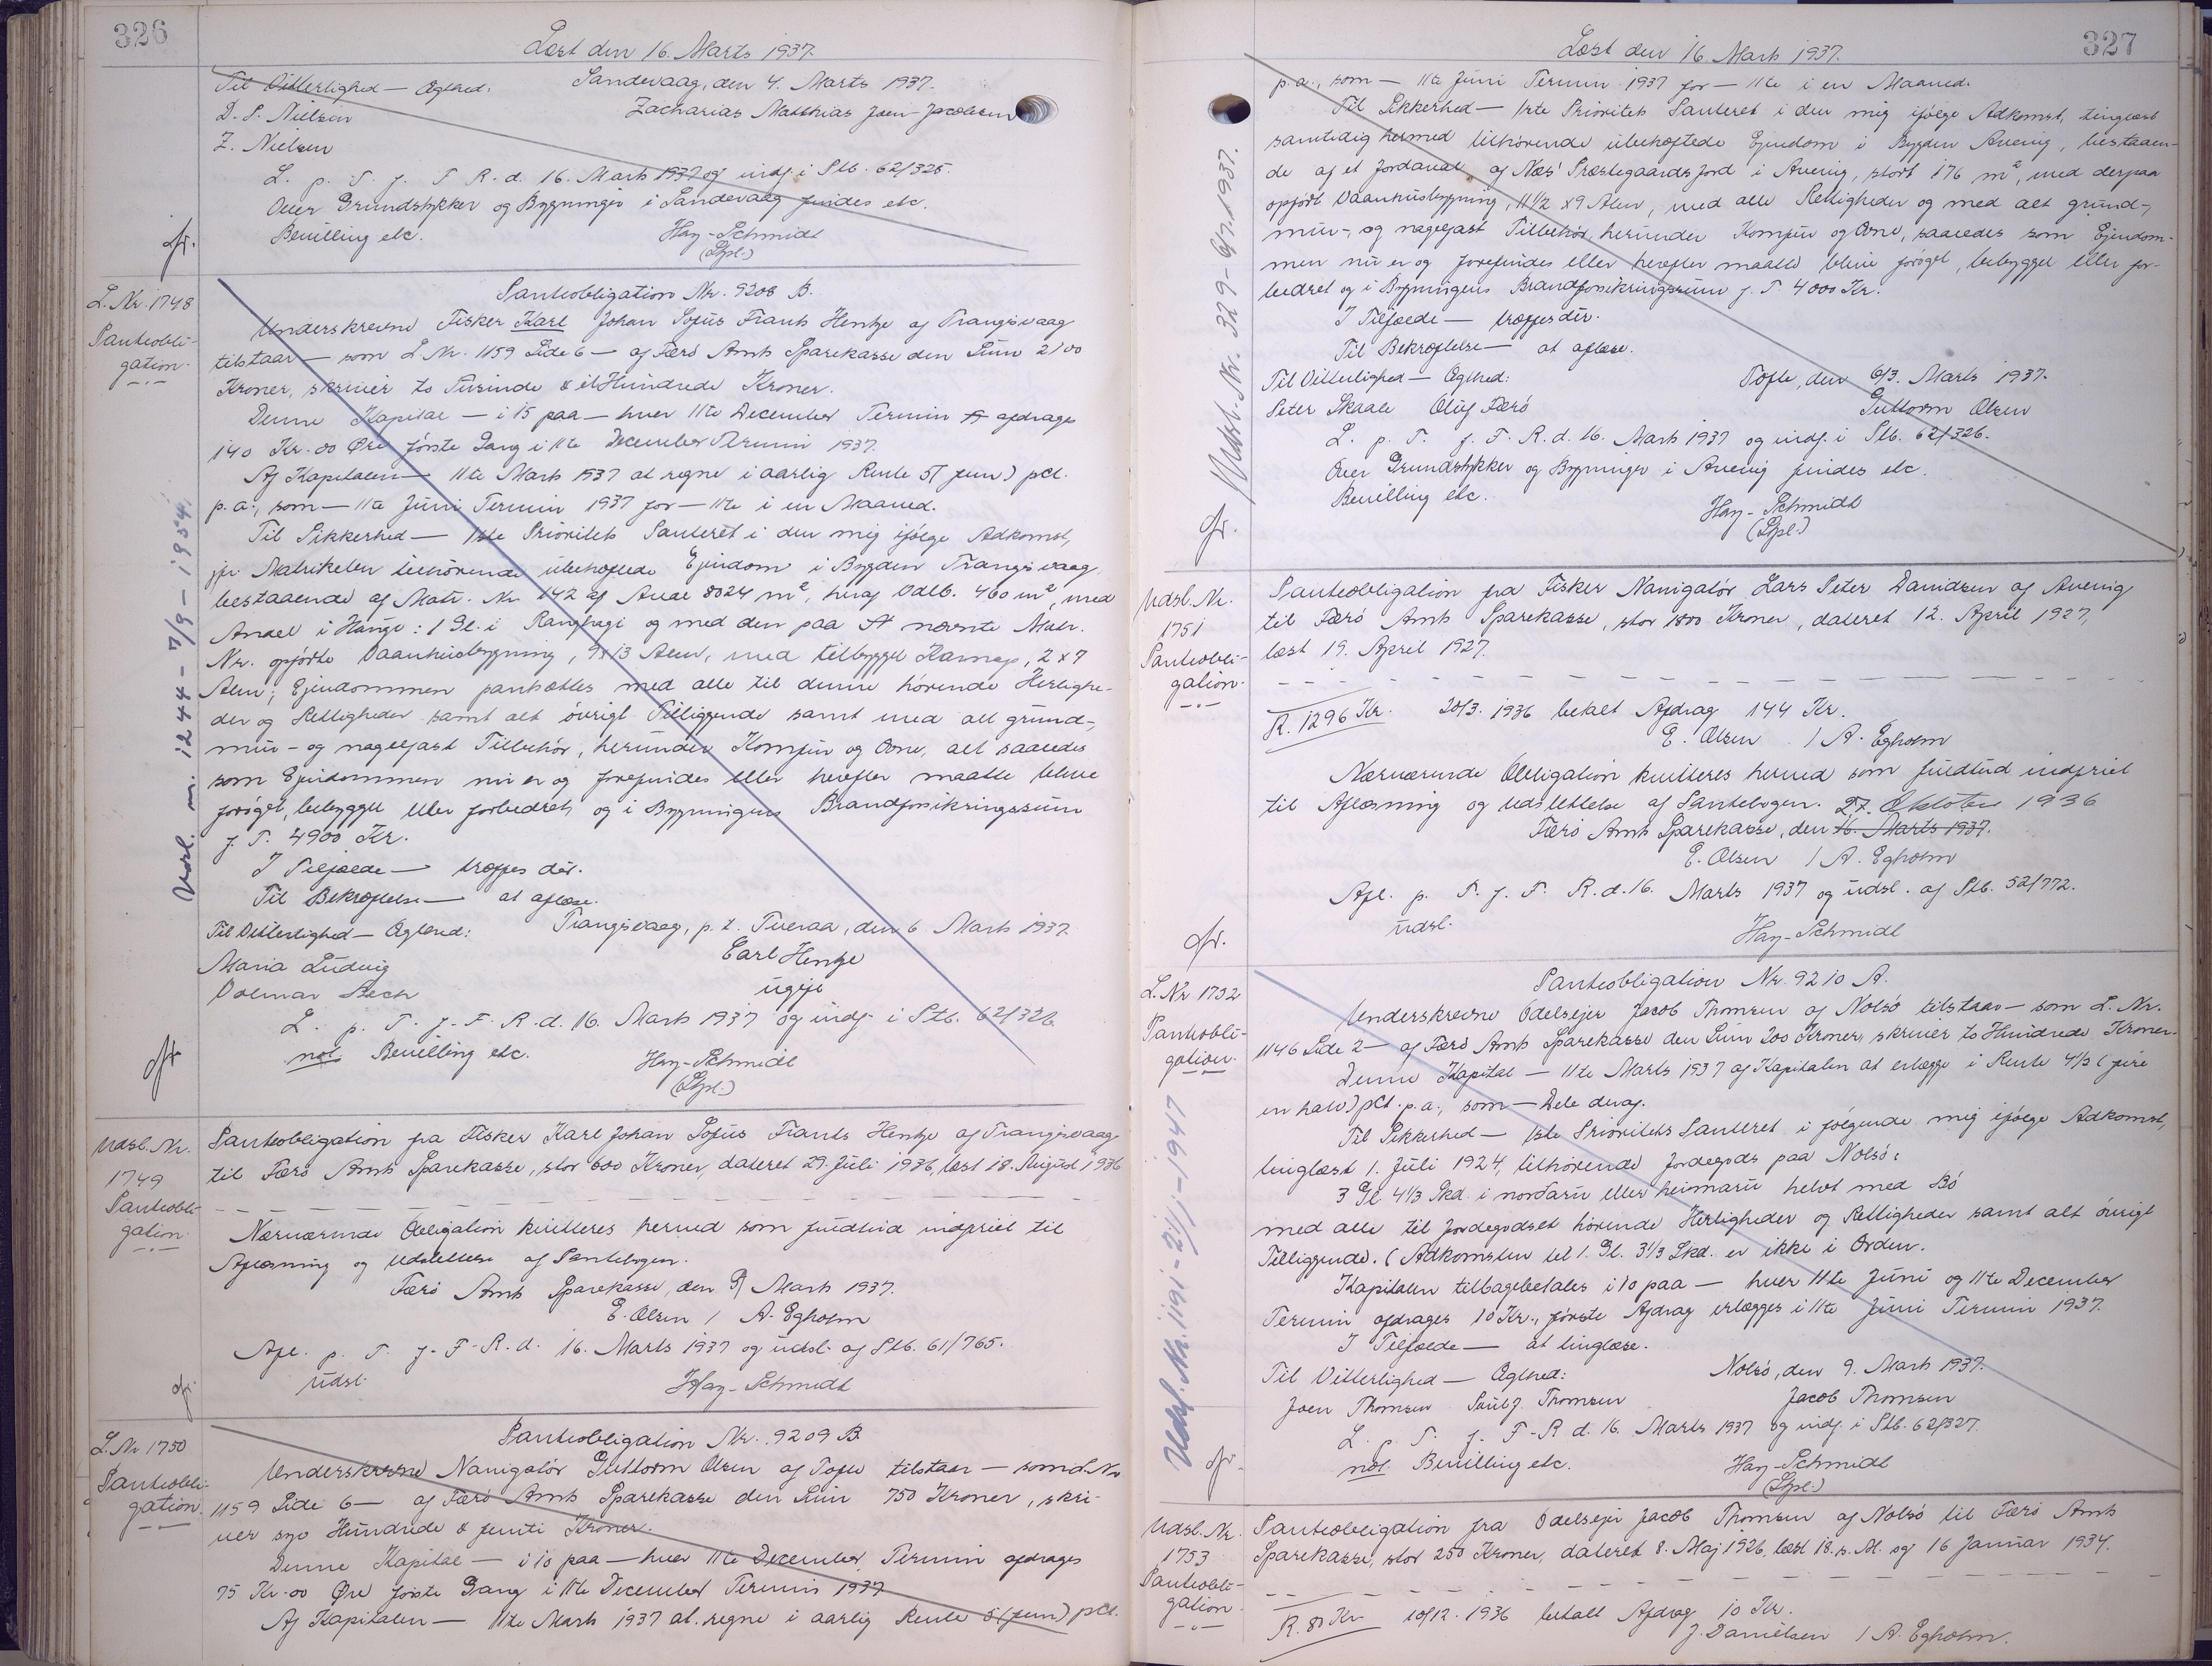 326
Læst den 16. Marts 1937.
Til Vitterlighed — Ægthed:
Sandevaag, den 4. Marts 1937.
D. S. Nielsen
Zacharias Matthias Joen Jacobsen
Z. Nielsen
L. p. T. f. F. R. d. 16. Marts 1937 og indf. i Ptb. 62/325.
Over Grundstykker og Bygninger i Sandevaag findes etc.
Bevilling etc.
Hay-Schmidt
(Gpl.)
L. Nr. 1748
Panteobli-
gation.
Udsl. nr. 1244 - 7/9 - 1954.
Panteobligation Nr. 9208 B.
Underskrevne Fisker Karl Johan Sofus Frants Hentze af Trangisvaag
tilstaar — som L. Nr. 1159 Side 6 — af Færø Amts Sparekasse den Sum 2100
Kroner, skriver to Tusinde & et Hundrede Kroner.
Denne Kapital — i 15 paa — hver 11te December Termin afdrages
140 Kr. 00 Øre første Gang i 11te December Termin 1937.
Af Kapitalen — 11te Marts 1937 at regne i aarlig Rente 5 (fem) pCt.
p. a., som — 11te Juni Termin 1937 for — 11te i en Maaned.
Til Sikkerhed — 1ste Prioritets Panteret i den mig ifølge Adkomst,
jfr. Matrikelen tilhørende ubehæftede Ejendom i Bygden Trangisvaag
bestaaende af Matr. Nr. 142 af Areal 8024 m², heraf Udlb. 460 m², med
Andel i Hauge: 1 Gl. i Ranghagi og med den paa nævnte Matr.
Nr. opførte Vaanhusbygning, 9x13 Alen, med tilbygget Karnap, 2 x 7
Alen; Ejendommen pantsættes med alle til denne hørende Herlighe-
der og Rettigheder samt alt øvrigt Tilliggende samt med alt grund-,
mur- og nagelfast Tilbehør, herunder Komfur og Ovne, alt saaledes
som Ejendommen nu er og forefindes eller herefter maatte blive
forøget, bebygget eller forbedret, og i Bygningens Brandforsikringssum
f. T. 4900 Kr.
I Tilfælde — træffes dér.
Til Bekræftelse — at aflæse.
Til Vitterlighed — Ægthed:
Trangisvaag, p. t. Tveraa, den 6. Marts 1937.
Maria Ludvig
Carl Hentze
Volmar Bech
ugift
L. p. T. f. F. R. d. 16. Marts 1937 og indf. i Ptb. 62/326.
not. Bevilling etc.
Hay-Schmidt
(Gpl.)
Udsl. Nr.
1749
Panteobli-
gation.
Panteobligation fra Fisker Karl Johan Sofus Frants Hentze af Trangisvaag
til Færø Amts Sparekasse, stor 600 Kroner, dateret 29. Juli 1936, læst 18. August 1936
Nærværende Obligation kvitteres herved som fuldtud indfriet til
Aflæsning og Udslettelse af Pantebogen.
Færø Amts Sparekasse, den 9/ Marts 1937.
E. Olsen / A. Egholm
Afl. p. T. f. F. R. d. 16. Marts 1937 og udsl. af Ptb. 61/765.
udsl.
Hay-Schmidt
L. Nr. 1750
Panteobli-
gation.
Panteobligation Nr. 9209 B.
Underskrevne Navigatør Guttorm Olsen af Tofte tilstaar — som L. Nr.
1159 Side 6 — af Færø Amts Sparekasse den Sum 750 Kroner, skri-
ver syv Hundrede & femti Kroner.
Denne Kapital — i 10 paa — hver 11te December Termin afdrages
75 Kr. 00 Øre første Gang i 11te December Termin 1937
Af Kapitalen — 11te Marts 1937 at regne i aarlig Rente 5 (fem) pCt.
327
Læst den 16. Marts 1937.
p. a., som — 11te Juni Termin 1937 for — 11te i en Maaned.
Til Sikkerhed — 1ste Prioritets Panteret i den mig ifølge Adkomst, tinglæst
samtidig hermed tilhørende ubehæftede Ejendom i Bygden Avevig, bestaaen-
de af et Jordareal af Næs' Præstegaards Jord i Avevig, stort 176 m², med derpaa
opført Vaanhusbygning, 11 1/2 x 9 Alen, med alle Rettigheder og med alt grund-,
mur-, og nagelfast Tilbehør, herunder Komfur og Ovne, saaledes som Ejendom-
men nu er og forefindes eller herefter maatte blive forøget, bebygget eller for-
bedret og i Bygningens Brandforsikringssum f. T. 4000 Kr.
I Tilfælde — træffes dér.
Til Bekræftelse — at aflæse.
Til Vitterlighed — Ægthed:
Tofte, den 6/3. Marts 1937.
Peter Skaale Oluf Færø
Guttorm Olsen
L. p. T. f. F. R. d. 16. Marts 1937 og indf. i Ptb. 62/326.
Over Grundstykker og Bygninger i Avevig findes etc.
Bevilling etc.
Hay-Schmidt
(Gpl.)
Udsl. Nr. 329 - 6/7. 1937.
Udsl. Nr.
1751
Panteobli-
gation.
Panteobligation fra Fisker Navigatør Lars Peter Davidsen af Avevig
til Færø Amts Sparekasse, stor 1800 Kroner, dateret 12. April 1927,
læst 19. April 1927.
R. 1296 Kr. 20/3. 1936 betalt Afdrag 144 Kr.
E. Olsen / A. Egholm
Nærværende Obligation kvitteres herved som fuldtud indfriet
til Aflæsning og Udslettelse af Pantebogen. 27. Oktober 1936
Færø Amts Sparekasse, den 16. Marts 1937.
E. Olsen / A. Egholm
Afl. p. T. f. F. R. d. 16. Marts 1937 og udsl. af Ptb. 52/772.
udsl.
Hay-Schmidt
L. Nr. 1752
Panteobli-
gation.
Udsl. Nr. 191 - 21/1 - 1947
Panteobligation Nr. 9210 A.
Underskrevne Odelsejer Jacob Thomsen af Nolsø tilstaar — som L. Nr.
1146 Side 2 — af Færø Amts Sparekasse den Sum 200 Kroner, skriver to Hundrede Kroner.
Denne Kapital — 11te Marts 1937 af Kapitalen at erlægge i Rente 4 1/2 (fire
en halv) pCt. p. a., som — Dele deraf.
Til Sikkerhed — 1ste Prioritets Panteret i følgende mig ifølge Adkomst,
tinglæst 1. Juli 1924, tilhørende Jordegods paa Nolsø:
3 Gl. 4 1/3 Skd. i norðaru eller heimaru helvt med Bø
med alle til Jordegodset hørende Herligheder og Rettigheder samt alt øvrigt
Tilliggende. (Adkomsten til 1. Gl. 3 1/3 Skd. er ikke i Orden.
Kapitalen tilbagebetales i 10 paa — hver 11te Juni og 11te December
Termin afdrages 10 Kr., første Afdrag erlægges i 11te Juni Termin 1937.
I Tilfælde — at tinglæse.
Til Vitterlighed — Ægthed:
Nolsø, den 9. Marts 1937.
Joen Thomsen Poul J. Thomsen
Jacob Thomsen
L. p. T. f. F. R. d. 16. Marts 1937 og indf. i Ptb. 62/327.
not. Bevilling etc.
Hay-Schmidt
(Gpl.)
Udsl. Nr.
1753
Panteobli-
gation
Panteobligation fra Odelsejer Jacob Thomsen af Nolsø til Færø Amts
Sparekasse, stor 250 Kroner, dateret 8. Maj 1926, læst 18. s. M. og 16 Januar 1934.
R. 80 Kr. 10/12. 1936 betalt Afdrag 10 Kr.
J. Danielsen / A. Egholm.